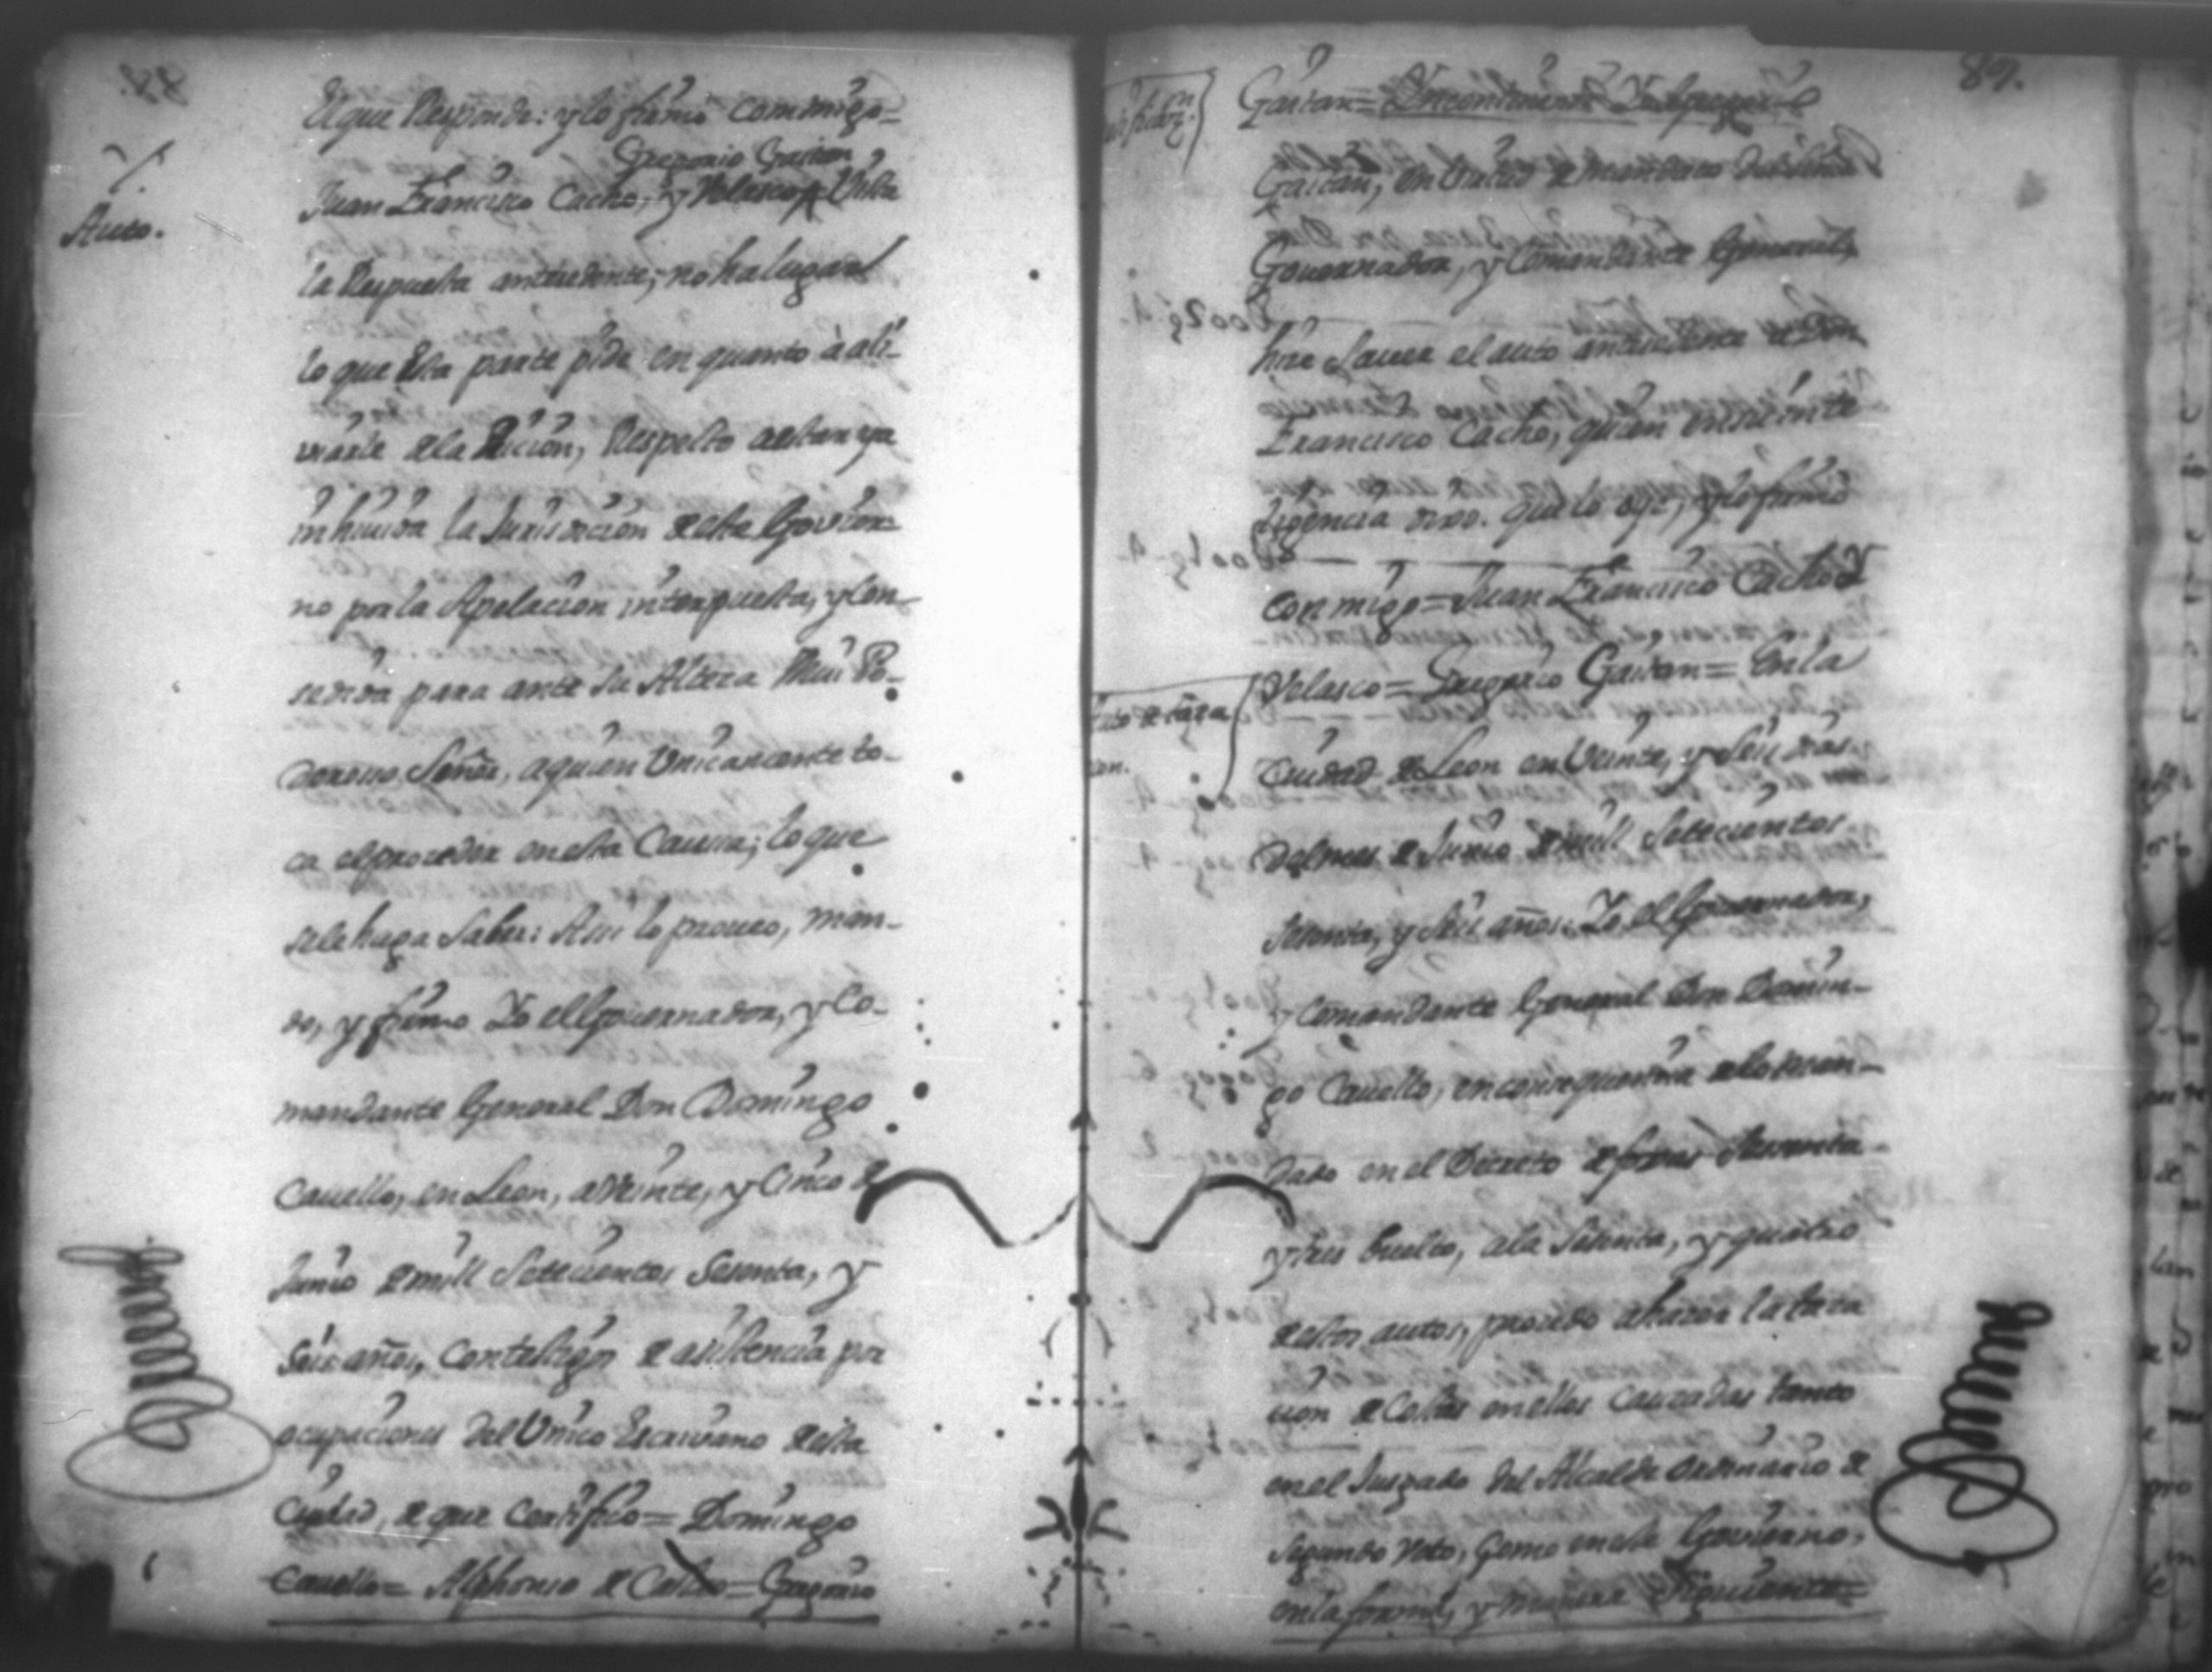 Auto.
El que Responde: y lo firmò conmigo=
Gregorio Gaitan
Juan Francisco Cacho, y Velasco= Vista
la Respuesta antecedente; no ha lugar
lo que Esta parte pide en quanto à ali-
viarle de la Pricion, Respecto a estar ya
inhivida la Jurisdicion de este Govier-
no por la Apelacion interpuesta, y con-
sedida para ante su Alteza Mui Po-
deroso Señor, a quien Unicamente to-
ca el proceder en esta Causa; lo que
se le haga Saber: Assi lo proveo, man-
do, y firmo Yo el Governador, y Co-
mandante General Don Domingo
Cavello, en Leon, a veinte, y Cinco de
Junio de mill Setecientos Sesenta, y
Seis años, con testigos de asistencia por
ocupaciones del Unico Escrivano de esta
Ciudad, de que Certifico= Domingo
Cavello= Alphonso de Casco= Gregorio
89.
Gaitan= Incontinenti Yo Gregorio
Gaitan, en Virtud de mandato del Señor
Governador, y Comandante General,
hize Saver el auto antecedente a Don
Francisco Cacho, quien
dixo. que lo oye, y lo firmò
conmigo= Juan Francisco Cacho, y
Velasco= Gregorio Gaitan= En la
Ciudad de Leon en Veinte, y Seis dias
del mes de Junio de mill Setecientos
Sesenta, y Seis años: Yo el Governador,
y Comandante General Don Domin-
go Cavello, en consequencia de lo man-
dado en el Decreto de foxas Sesenta
y tres buelto, a la Sesenta, y quatro
de estos autos, procedo a hazer la taza
cion de Costas en ellos Cauzadas tanto
en el Juzgado del Alcalde Ordinario de
Segundo Voto, Como en este Govierno,
en la forma, y manera Siguiente=